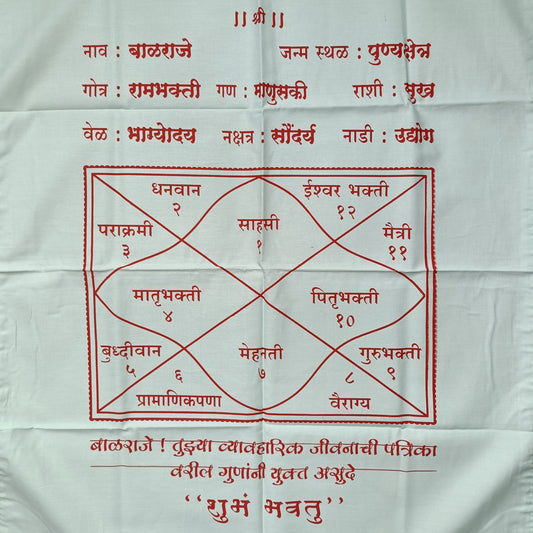 || श्री ||
नाव : बाळराजे जन्म स्थळ : पुण्यक्षेत्र
गोत्र : रामभक्ती गण : माणुसकी राशी : सुख
वेळ : भाग्योदय नक्षत्र : सौंदर्य नाडी : उद्योग
धनवान ईश्वर भक्ती
२ १२
साहसी
१
पराक्रमी मैत्री
३ ११
मातृभक्ती पितृभक्ती
४ १०
बुध्दीवान मेहनती गुरुभक्ती
५ ६ ७ ८ ९
प्रामाणिकपणा वैराग्य
बाळराजे ! तुझ्या व्यावहारिक जीवनाची पत्रिका
वरील गुणांनी युक्त असुदे
“शुभं भवतु”